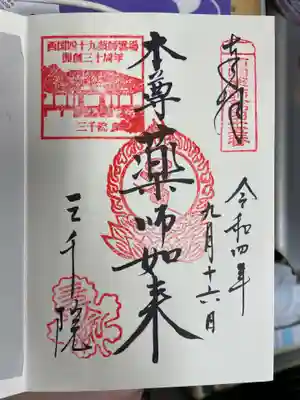 奉拝
令和四年
九月十六日
本尊 薬師如来
西国四十九薬師霊場
開創三十周年
三千院
三千院